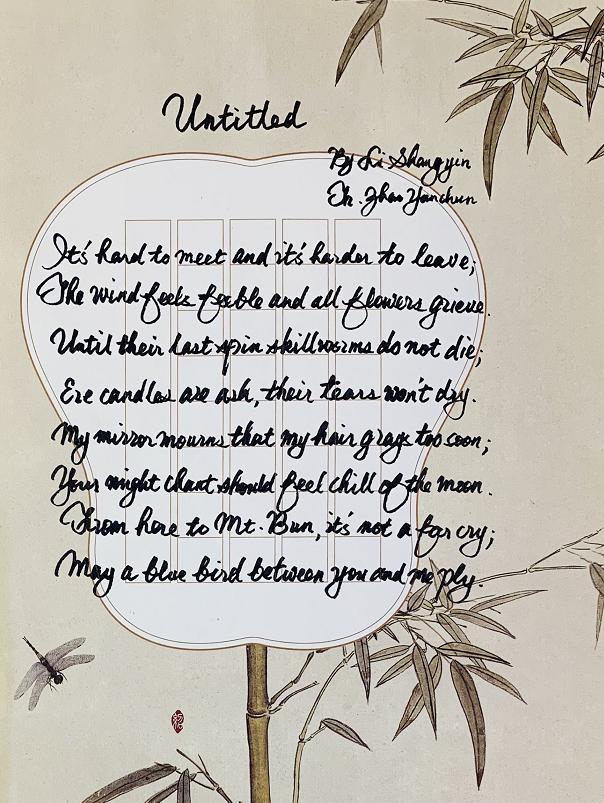 Untitled
By Li Shangyin
Tr. Zhao Yanchun
It's hard to meet and it's harder to leave;
The wind feels feeble and all flowers grieve.
Until their last spin skillworms do not die;
Ere candles are ash, their tears won't dry.
My mirror mourns that my hair grays too soon;
Your night chant should feel chill of the moon.
From here to Mt. Bun, it's not a far cry;
May a blue bird between you and me ply.